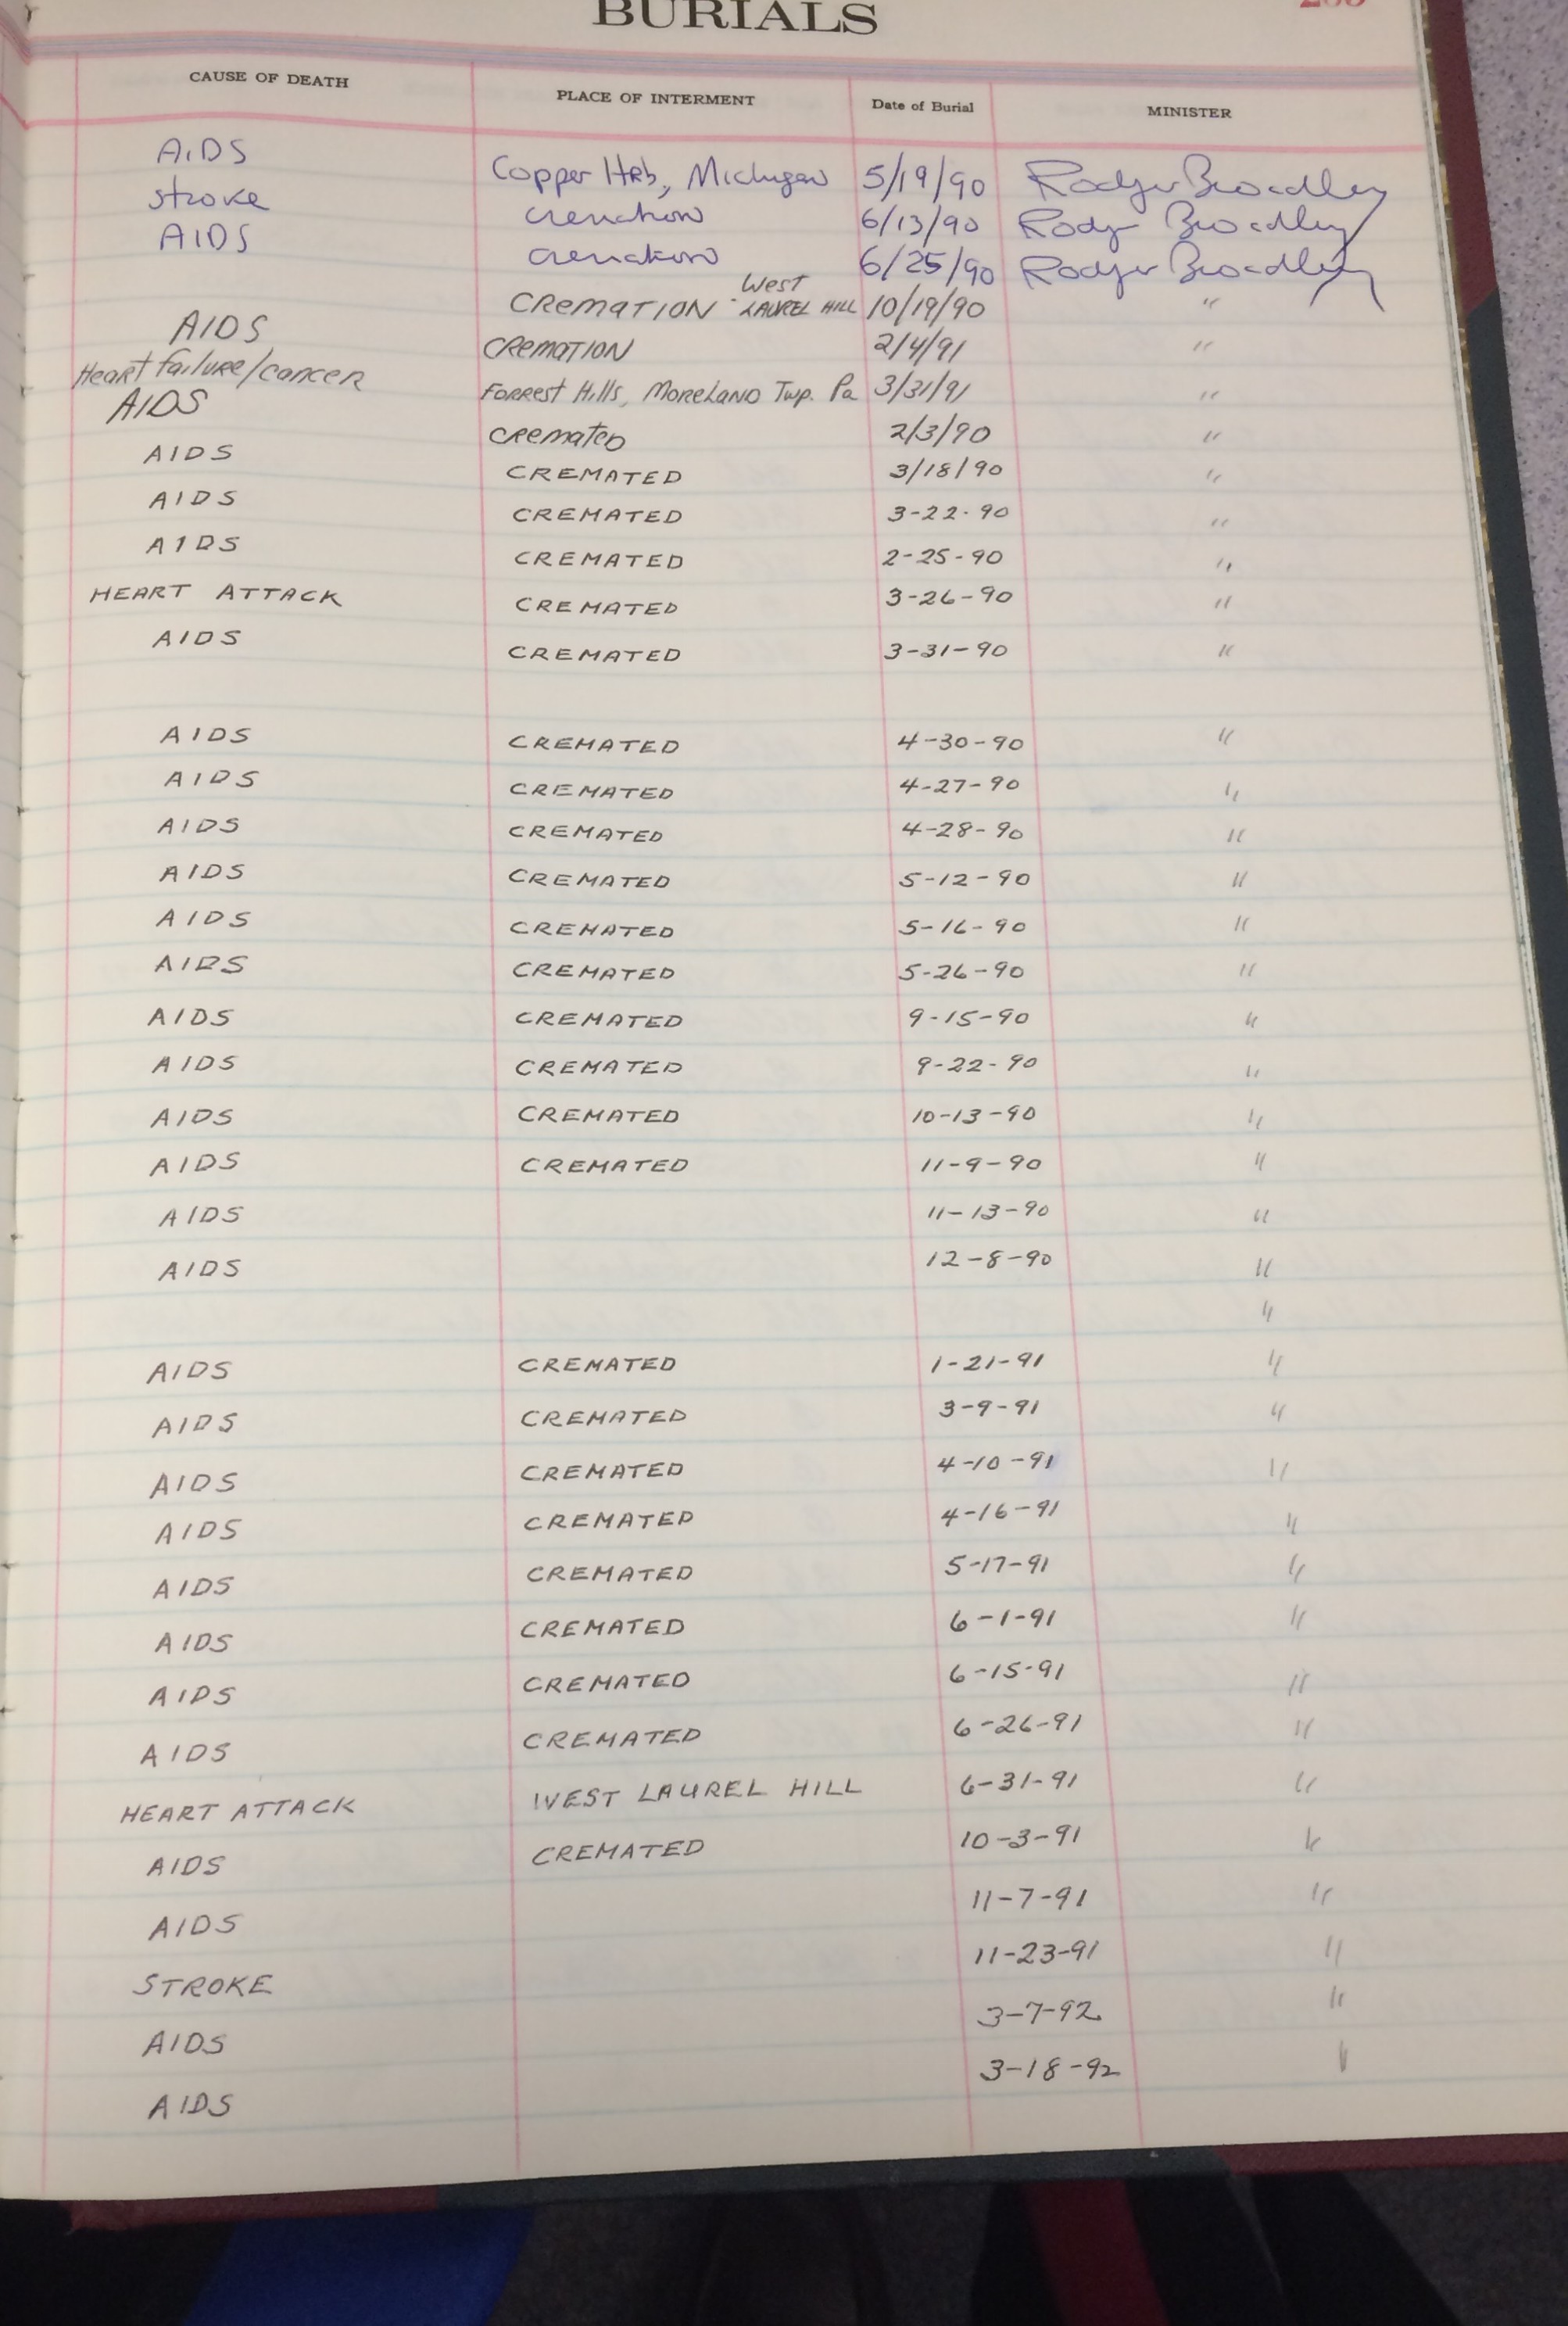 BURIALS
CAUSE OF DEATH PLACE OF INTERMENT Date of Burial MINISTER
AIDS Copper Hrb, Michigan 5/19/90 Rodger Broadley
stroke cremation 6/13/90 Rodger Broadley
AIDS cremation 6/25/90 Rodger Broadley
West
CREMATION - LAUREL HILL 10/19/90 "
AIDS CREMATION 2/4/91 "
Heart failure/cancer FORREST Hills, MORELAND Twp. Pa 3/31/91 "
AIDS Cremated 2/3/90 "
AIDS CREMATED 3/18/90 "
AIDS CREMATED 3-22-90 "
AIDS CREMATED 2-25-90 "
HEART ATTACK CREMATED 3-26-90 "
AIDS CREMATED 3-31-90 "
AIDS CREMATED 4-30-90 "
AIDS CREMATED 4-27-90 "
AIDS CREMATED 4-28-90 "
AIDS CREMATED 5-12-90 "
AIDS CREMATED 5-16-90 "
AIDS CREMATED 5-26-90 "
AIDS CREMATED 9-15-90 "
AIDS CREMATED 9-22-90 "
AIDS CREMATED 10-13-90 "
AIDS CREMATED 11-9-90 "
AIDS 11-13-90 "
AIDS 12-8-90 "
"
AIDS CREMATED 1-21-91 "
AIDS CREMATED 3-9-91 "
AIDS CREMATED 4-10-91 "
AIDS CREMATED 4-16-91 "
AIDS CREMATED 5-17-91 "
AIDS CREMATED 6-1-91 "
AIDS CREMATED 6-15-91 "
AIDS CREMATED 6-26-91 "
HEART ATTACK WEST LAUREL HILL 6-31-91 "
AIDS CREMATED 10-3-91 "
AIDS 11-7-91 "
STROKE 11-23-91 "
AIDS 3-7-92 "
AIDS 3-18-92 "